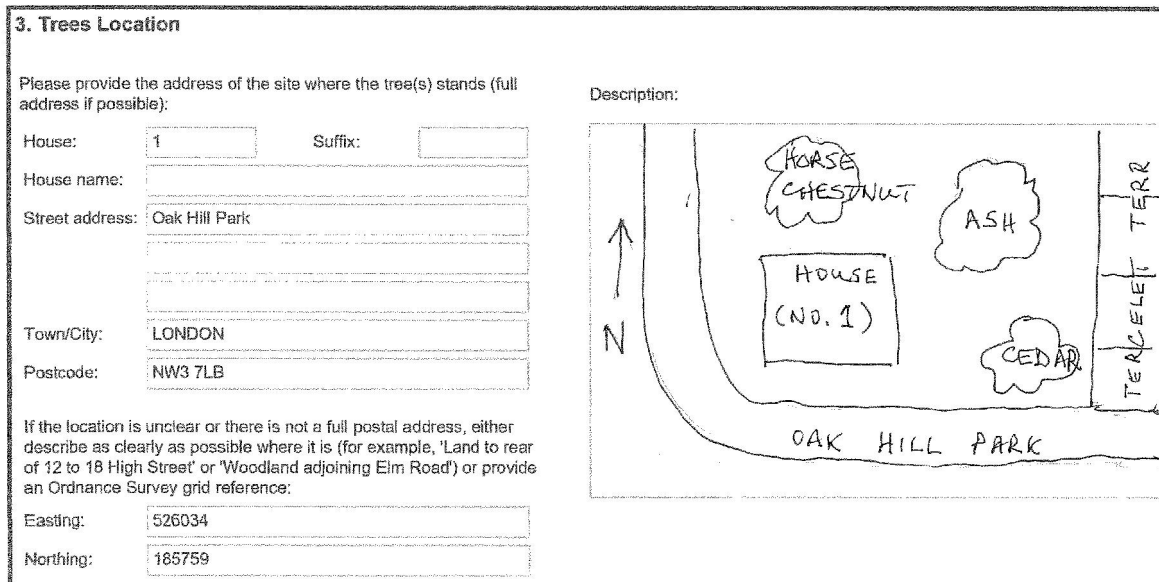 3. Trees Location
Please provide the address of the site where the tree(s) stands (full
address if possible):
House: 1 Suffix:
House name:
Street address: Oak Hill Park
Town/City: LONDON
Postcode: NW3 7LB
If the location is unclear or there is not a full postal address, either
describe as clearly as possible where it is (for example, 'Land to rear
of 12 to 18 High Street' or 'Woodland adjoining Elm Road') or provide
an Ordnance Survey grid reference:
Easting: 526034
Northing: 185759
Description:
HORSE
CHESTNUT
ASH
HOUSE
(NO. 1)
N
CEDAR
TERCELET TERR
OAK HILL PARK